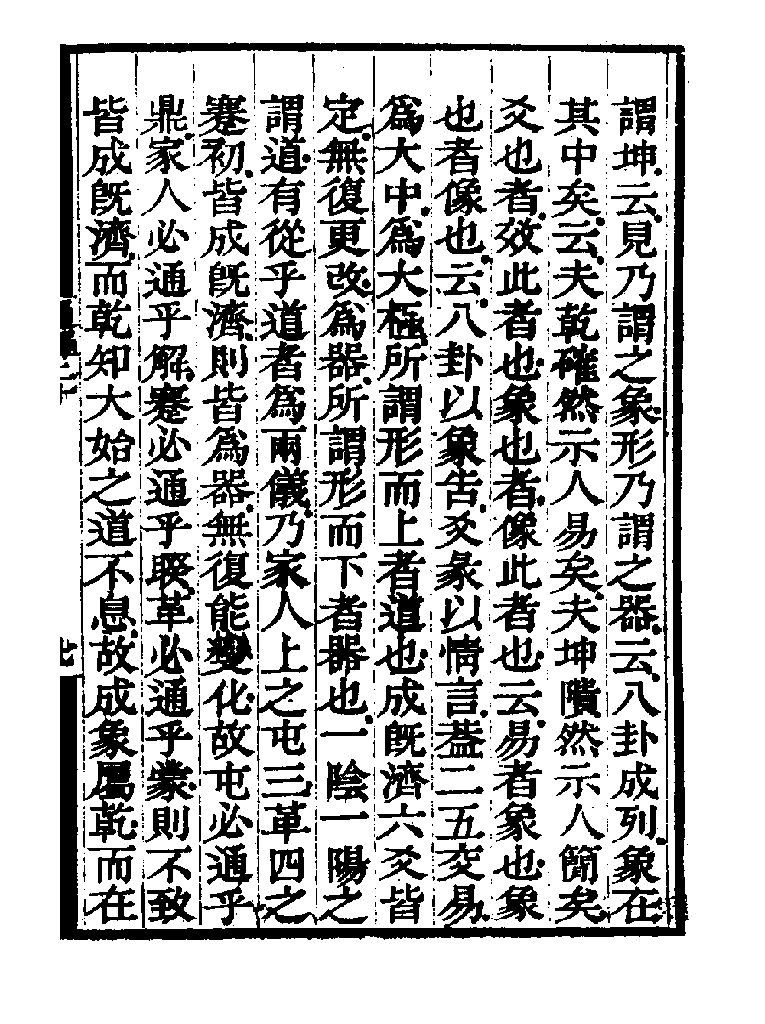 謂坤云見乃謂之象形乃謂之器云八卦成列象在
其中矣云夫乾確然示人易矣夫坤隤然示人簡矣
爻也者效此者也象也者像此者也云易者象也象
也者像也云八卦以象告爻彖以情言葢二五交易
爲大中爲大極所謂形而上者道也成旣濟六爻皆
定無復更改爲器所謂形而下者器也一陰一陽之
謂道有從乎道者爲兩儀乃家人上之屯三革四之
蹇初皆成旣濟則皆爲器無復能變化故屯必通乎
鼎家人必通乎解蹇必通乎睽革必通乎蒙則不致
皆成旣濟而乾知大始之道不息故成象屬乾而在